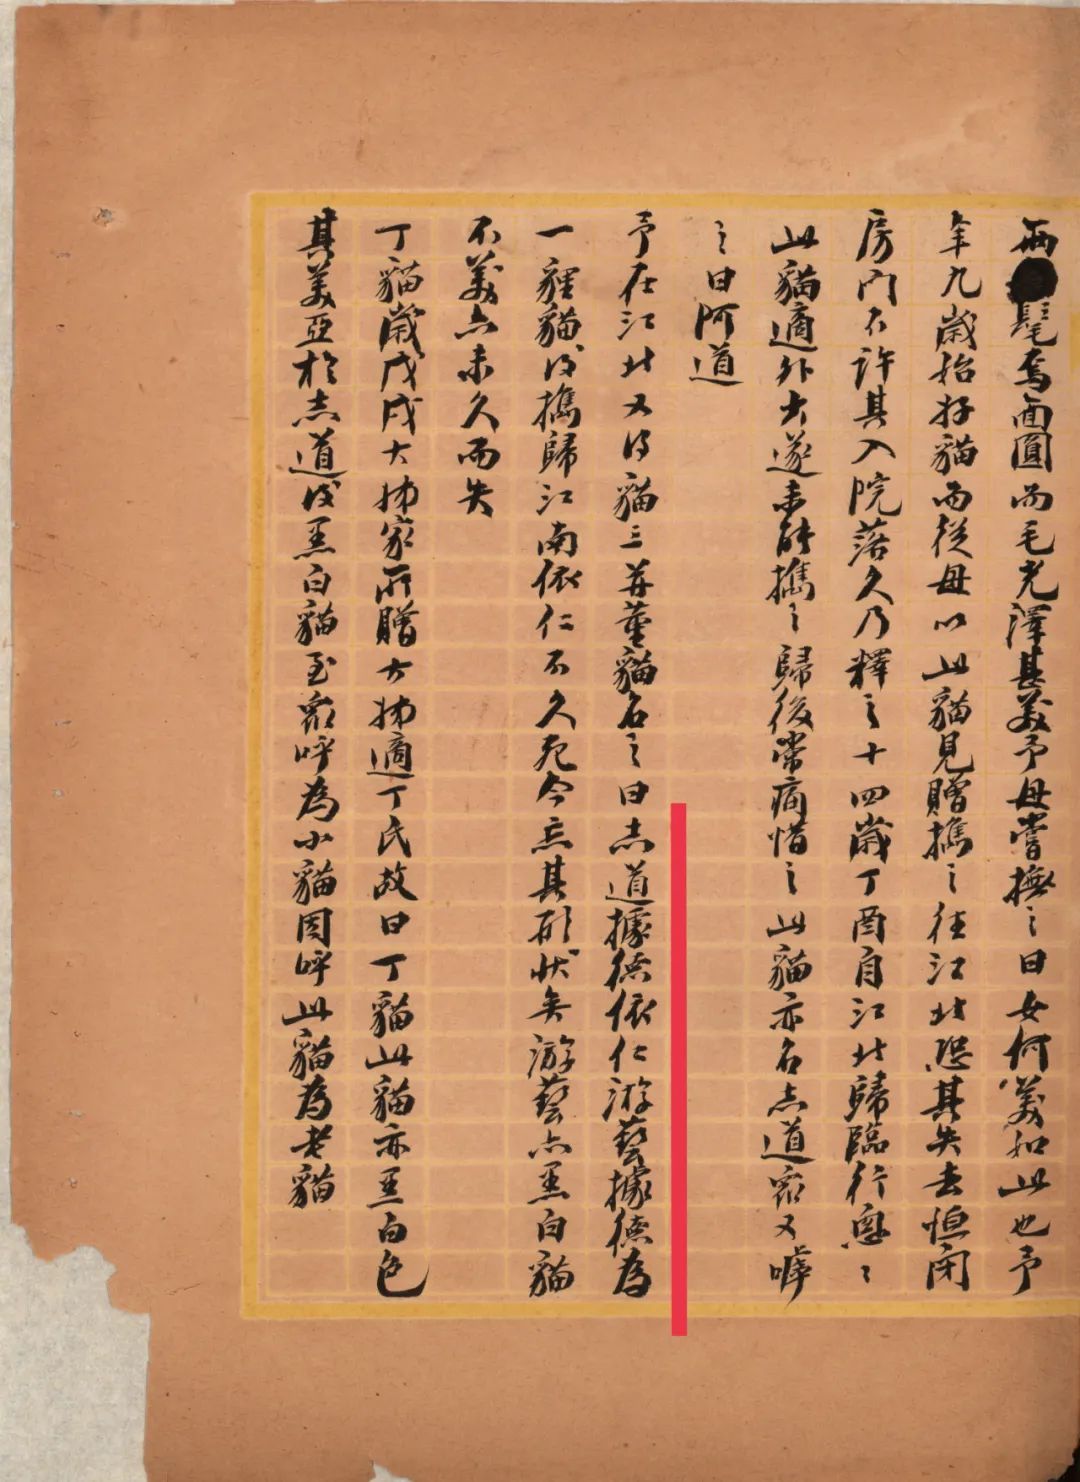 兩髦焉面圓而毛光澤甚美予母嘗撫之曰女何美如此也予
年九歲始好貓而從母以此貓見贈攜之往江北恐其失去恒閉
房門不許其入院落久乃釋之十四歲丁酉自江北歸臨行悤〻
此貓適外出遂未能攜之歸後常痛惜之此貓亦名志道眾又嘑
之曰阿道
予在江北又得貓三并董貓名之曰志道據德依仁游藝據德為
一貍貓後攜歸江南依仁不久死今忘其形狀矣游藝亦黑白貓
不美亦未久而失
丁貓歲戊戌大姊家所贈大姊適丁氏故曰丁貓此貓亦黑白色
其美亞於志道後黑白貓至眾呼為小貓因呼此貓為老貓